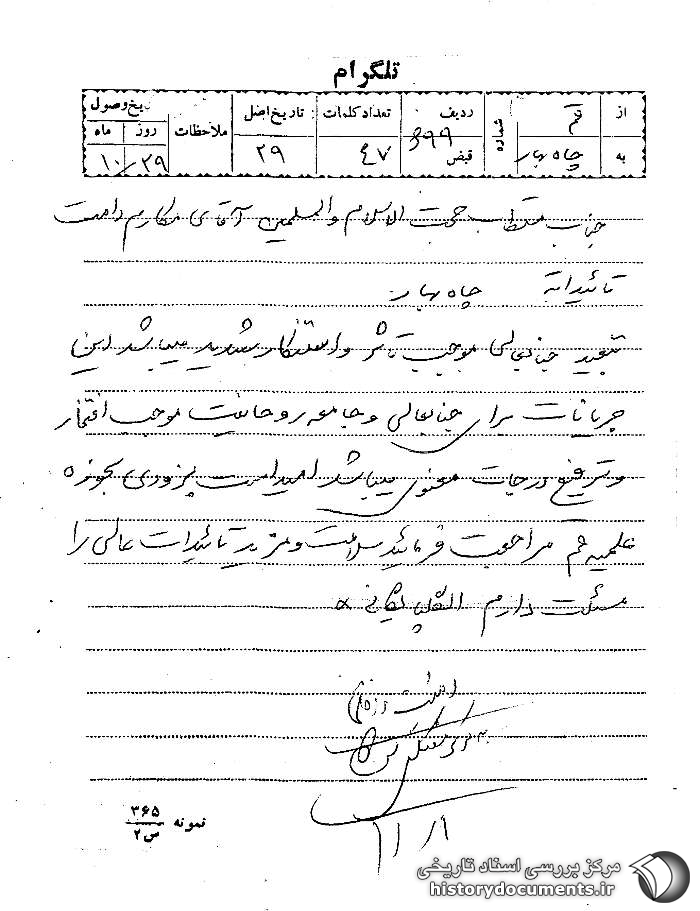 تلگرام
از قم
به چاه بهار
شماره
ردیف ۳۹۹
قبض
تعداد کلمات ۴۷
تاریخ اصل ۲۹
ملاحظات
تاریخ وصول
روز ماه
۲۹/۱۰
جناب مستطاب حجت الاسلام والمسلمین آقای مکارم دامت
تائیداته چاه بهار
تبعید جنابعالی موجب تاثر و استنکار شدید میباشد این
جریانات برای جنابعالی و جامعه روحانیت موجب افتخار
و ترفیع درجات معنوی میباشد امید است بزودی بحوزه
علمیه قم مراجعت فرمائید سلامت و مزید تائیدات عالی را
مسئلت دارم الگلپایگانی
۱۱/۱
نمونه ۳۶۵
س۲
مرکز بررسی اسناد تاریخی
historydocuments.ir